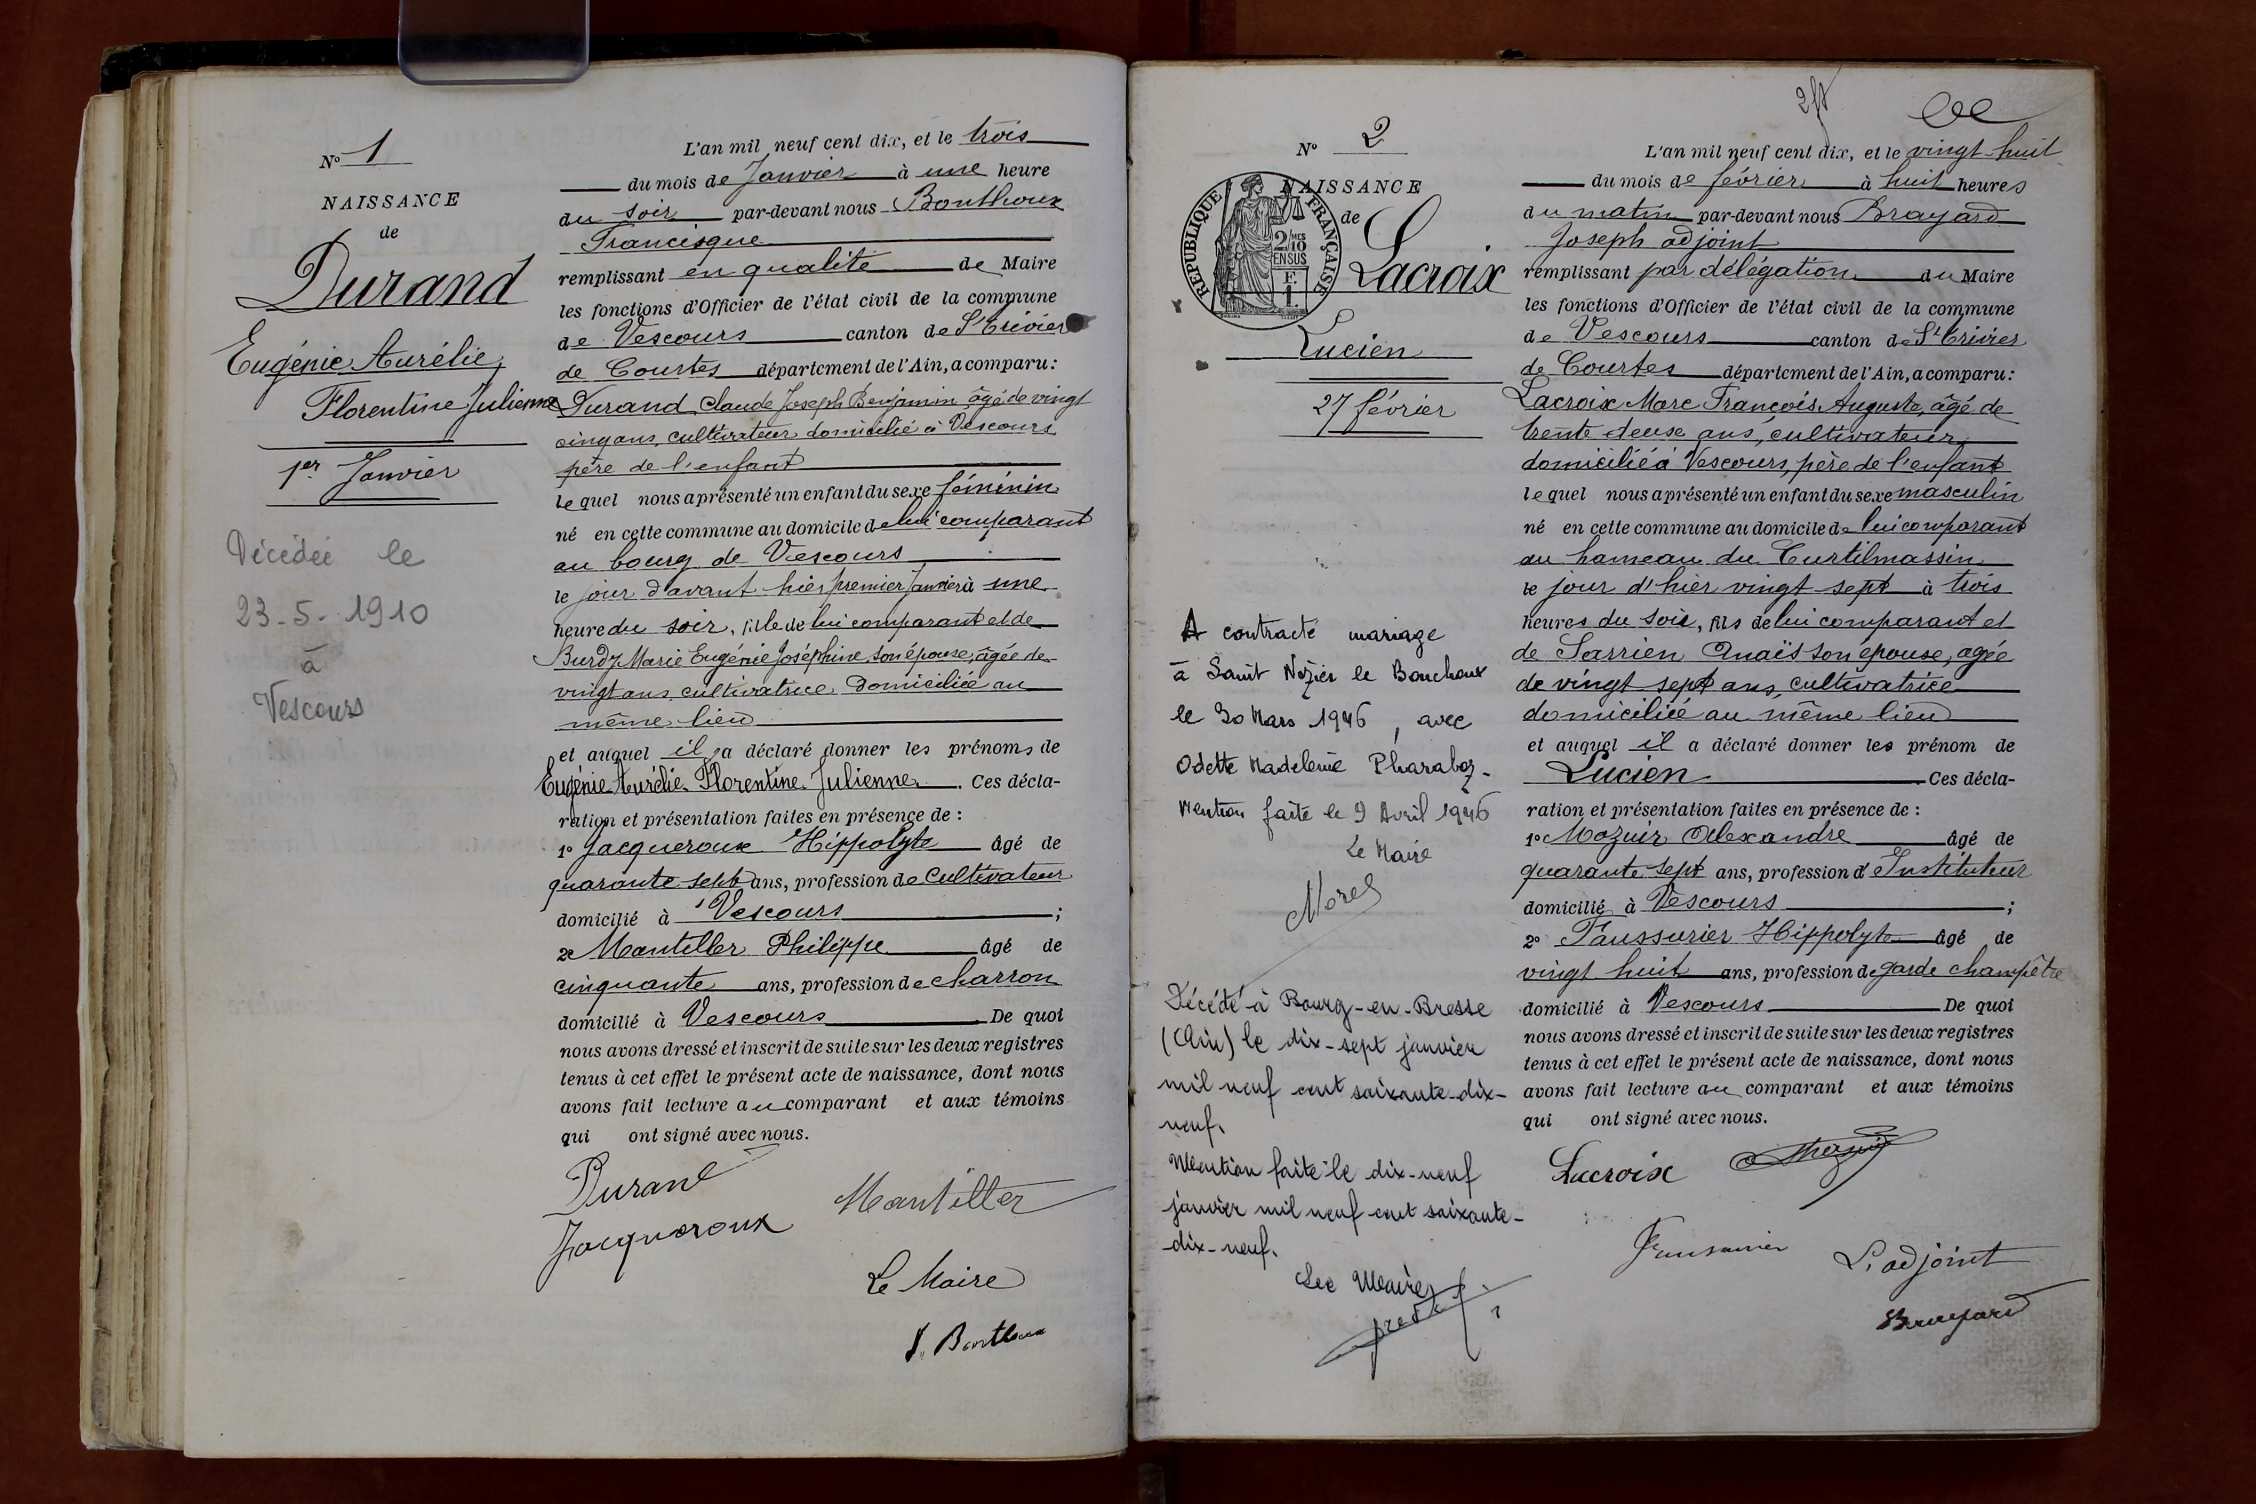 N° 1
NAISSANCE
de
Durand
Eugénie Aurélie,
Florentine Julienne
1er Janvier
Décédée le
23-5-1910
à
Vescours
L'an mil neuf cent dix, et le trois
du mois de Janvier à une heure
du soir par-devant nous Bonthoux
Francisque
remplissant en qualité de Maire
les fonctions d'Officier de l'état civil de la commune
de Vescours canton de St Trivier
de Courtes département de l'Ain, a comparu:
Durand Claude Joseph Benjamin âgé de vingt
cinq ans, cultivateur domicilié à Vescours
père de l'enfant
lequel nous a présenté un enfant du sexe féminin
né en cette commune au domicile de lui comparant
au bourg de Vescours
le jour d'avant hier premier Janvier à une
heure du soir, fille de lui comparant et de
Burdy Marie Eugénie Joséphine, son épouse, âgée de
vingt ans, cultivatrice domiciliée au
même lieu
et auquel il a déclaré donner les prénoms de
Eugénie Aurélie Florentine Julienne. Ces décla-
ration et présentation faites en présence de :
1° Jacqueroux Hippolyte âgé de
quarante-sept ans, profession de cultivateur
domicilié à Vescours ;
2e Mantiller Philippe âgé de
cinquante ans, profession de charron
domicilié à Vescours De quoi
nous avons dressé et inscrit de suite sur les deux registres
tenus à cet effet le présent acte de naissance, dont nous
avons fait lecture au comparant et aux témoins
qui ont signé avec nous.
Durand
Mantiller
Jacqueroux
Le Maire
F. Bonthoux
N° 2
NAISSANCE
de
RÉPUBLIQUE FRANÇAISE
2/10 MES
EN SUS
F.
1.
Lacroix
Lucien
27 février
A contracté mariage
à Saint Nizier le Bouchoux
le 30 Mars 1946, avec
Odette Madeleine Pharaboz-
Mention faite le 9 Avril 1946
Le Maire
Morel
Décédé à Bourg-en-Bresse
(Ain) le dix-sept janvier
mil neuf cent soixante-dix-
neuf.
Mention faite le dix-neuf
janvier mil neuf cent soixante-
-dix-neuf.
Le Maire,
L'an mil neuf cent dix, et le vingt-huit
du mois de février à huit heures
du matin par-devant nous Brayard
Joseph adjoint
remplissant par délégation du Maire
les fonctions d'Officier de l'état civil de la commune
de Vescours canton de St Trivier
de Courtes département de l'Ain, a comparu:
Lacroix Marc François Auguste, âgé de
trente deux ans, cultivateur,
domicilié à Vescours, père de l'enfant
lequel nous a présenté un enfant du sexe masculin
né en cette commune au domicile de lui comparant
au hameau du Curtilmassin
le jour d'hier vingt sept à trois
heures du soir, fils de lui comparant et
de Sarrien Anaïs son épouse, agée
de vingt sept ans, cultivatrice
domiciliée au même lieu
et auquel il a déclaré donner les prénom de
Lucien Ces décla-
ration et présentation faites en présence de :
1° Mozuir Alexandre âgé de
quarante-sept ans, profession d'Instituteur
domicilié à Vescours ;
2° Faussurier Hippolyte âgé de
vingt huit ans, profession de garde champêtre
domicilié à Vescours De quoi
nous avons dressé et inscrit de suite sur les deux registres
tenus à cet effet le présent acte de naissance, dont nous
avons fait lecture au comparant et aux témoins
qui ont signé avec nous.
Lacroix
Faussurier
L'adjoint
Brayard